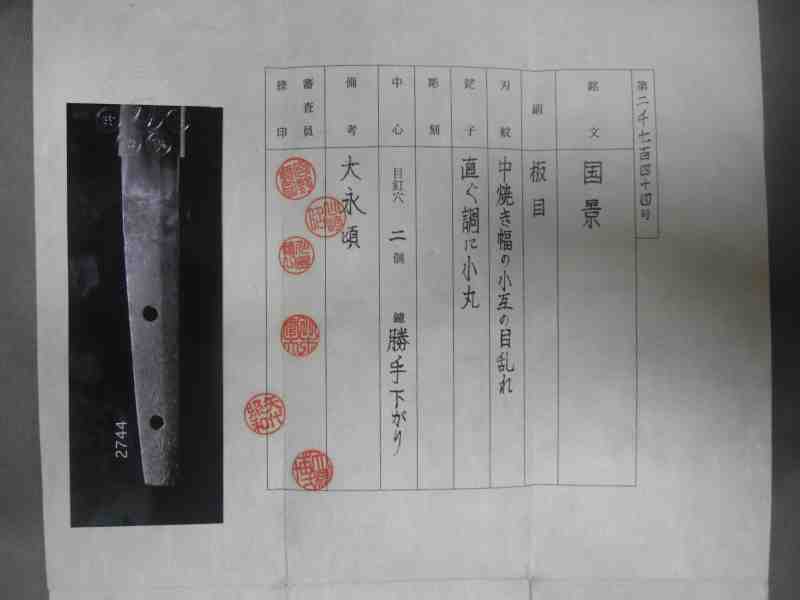 第二千七百四十四号
銘文 国景
鍛 板目
刃紋 中焼き幅の小互の目乱れ
鋩子 直ぐ調に小丸
彫刻
中心 目釘穴 二個 鑢 勝手下がり
備考 大永頃
審査員
捺印
2744